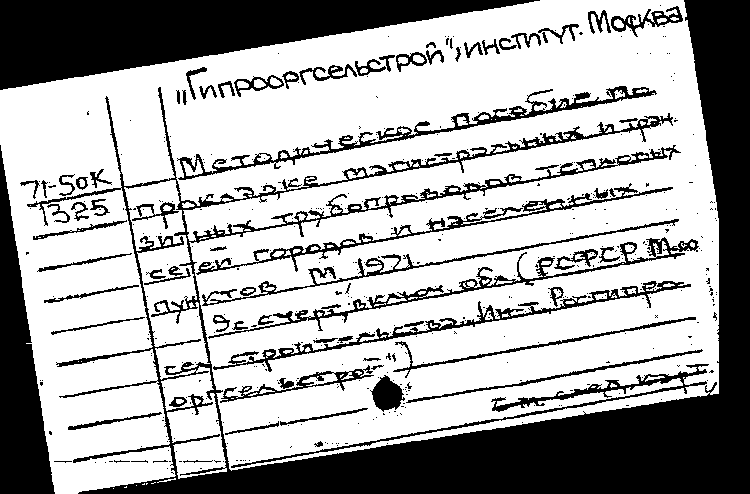 „Гипрооргсельстрой", институт. Москва.
Методическое пособие по
71-50К
прокладке магистральных и тран-
1325
зитных трубопроводов тепловых
сетей городов и населенных
пунктов М. 1971.
9с. с черт., включ. обл. (РСФСР М-во
сел. строительства. Ин-т „Росгипро-
оргсельстрой")
см. след. карт.